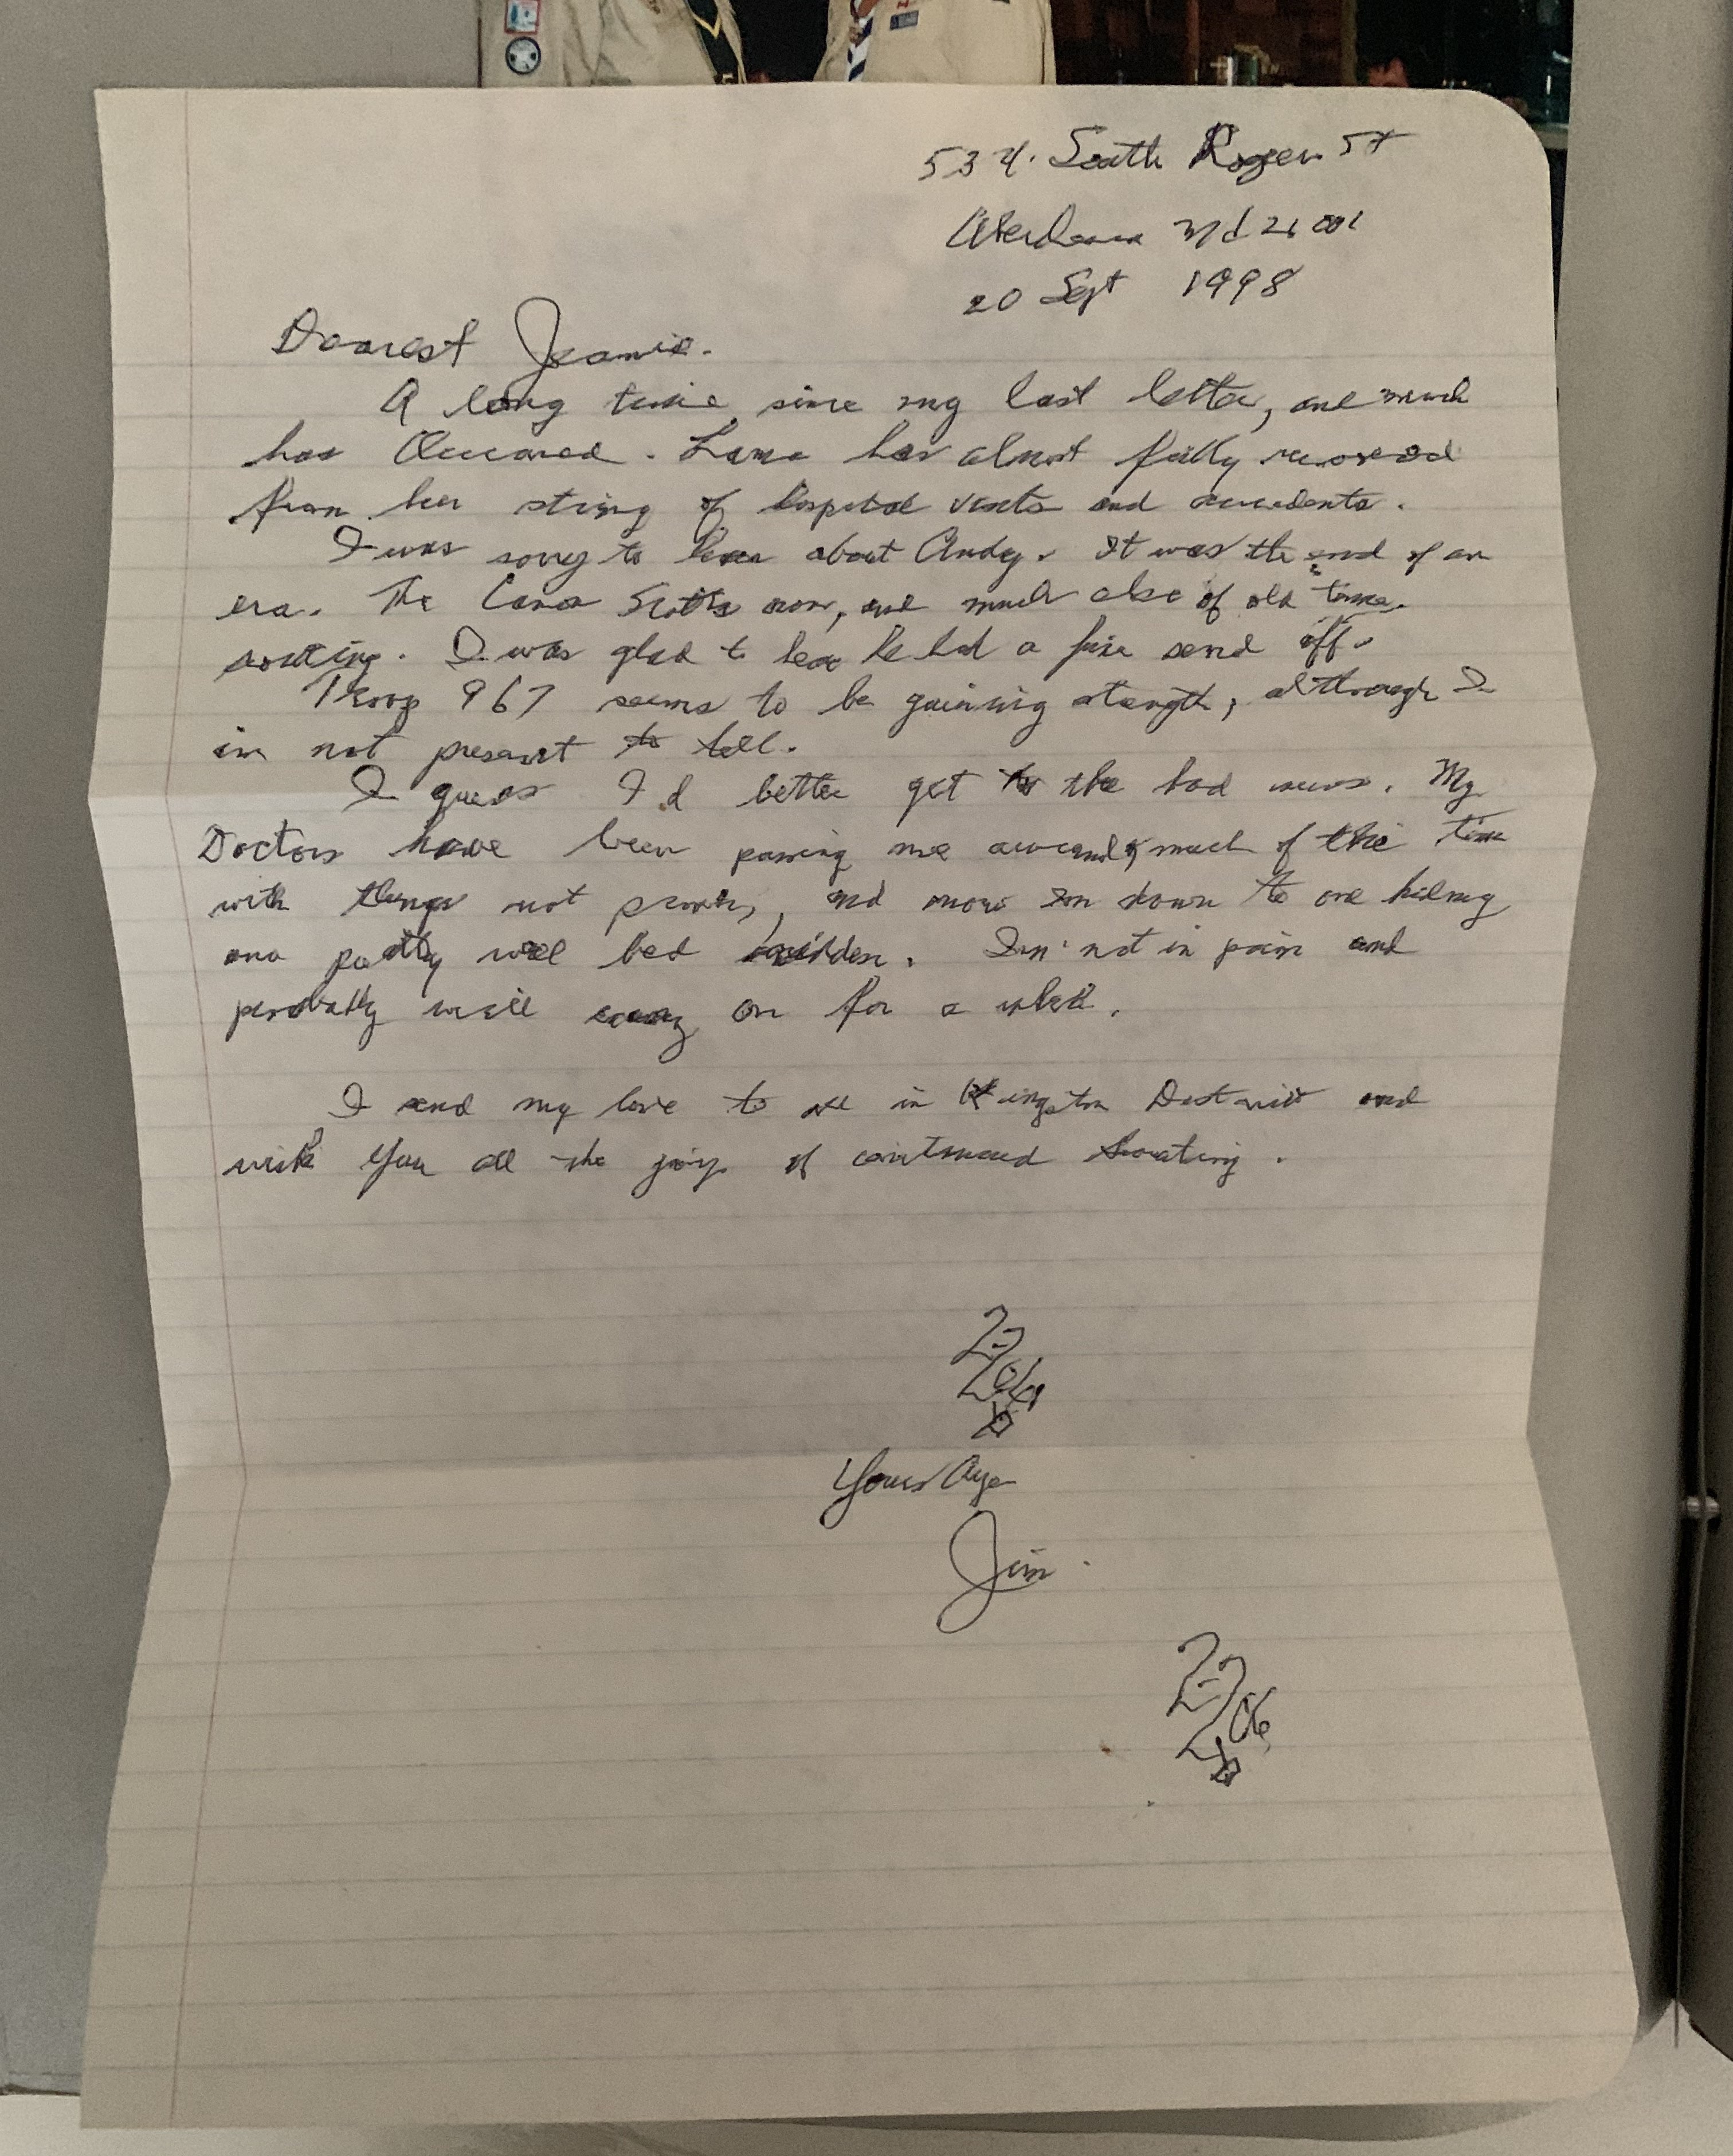 534. South Rogers St
Aberdeen Md 21001
20 Sept 1998
Dearest Jeannie.
A long time since my last letter, and much
has Occurred. Lana has almost fully recovered
from her string of hospital visits and accidents.
I was sorry to hear about Andy. It was the end of an
era. The Scotts now, and much else of old time
scouting. I was glad to hear he had a fine send off.
Troop 967 seems to be gaining strength, although I
im not present to tell.
I guess I'd better get to the bad news. My
Doctors have been passing me around, much of the time
with things not proven, and now Im down to one kidney
and partly well bed ridden. Im not in pain and
probably will carry on for a while.
I send my love to all in Kingston District and
wish you all the joys of continued Scouting.
Yours Aye
Jim